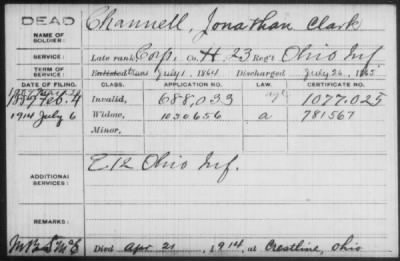 DEAD
NAME OF SOLDIER: Channell, Jonathan Clark
SERVICE: Late rank Corp, Co. H, 23 Reg't Ohio Inf
TERM OF SERVICE: Enlisted July 1, 1864 Discharged July 26, 1865
DATE OF FILING. CLASS. APPLICATION NO. LAW. CERTIFICATE NO.
1889 Feb. 4 Invalid, 688,033 1077.025
1914 July 6 Widow, 1030656 a 781567
Minor,
ADDITIONAL SERVICES: E 12 Ohio Inf.
REMARKS:
Died Apr 21, 1914, at Crestline, Ohio